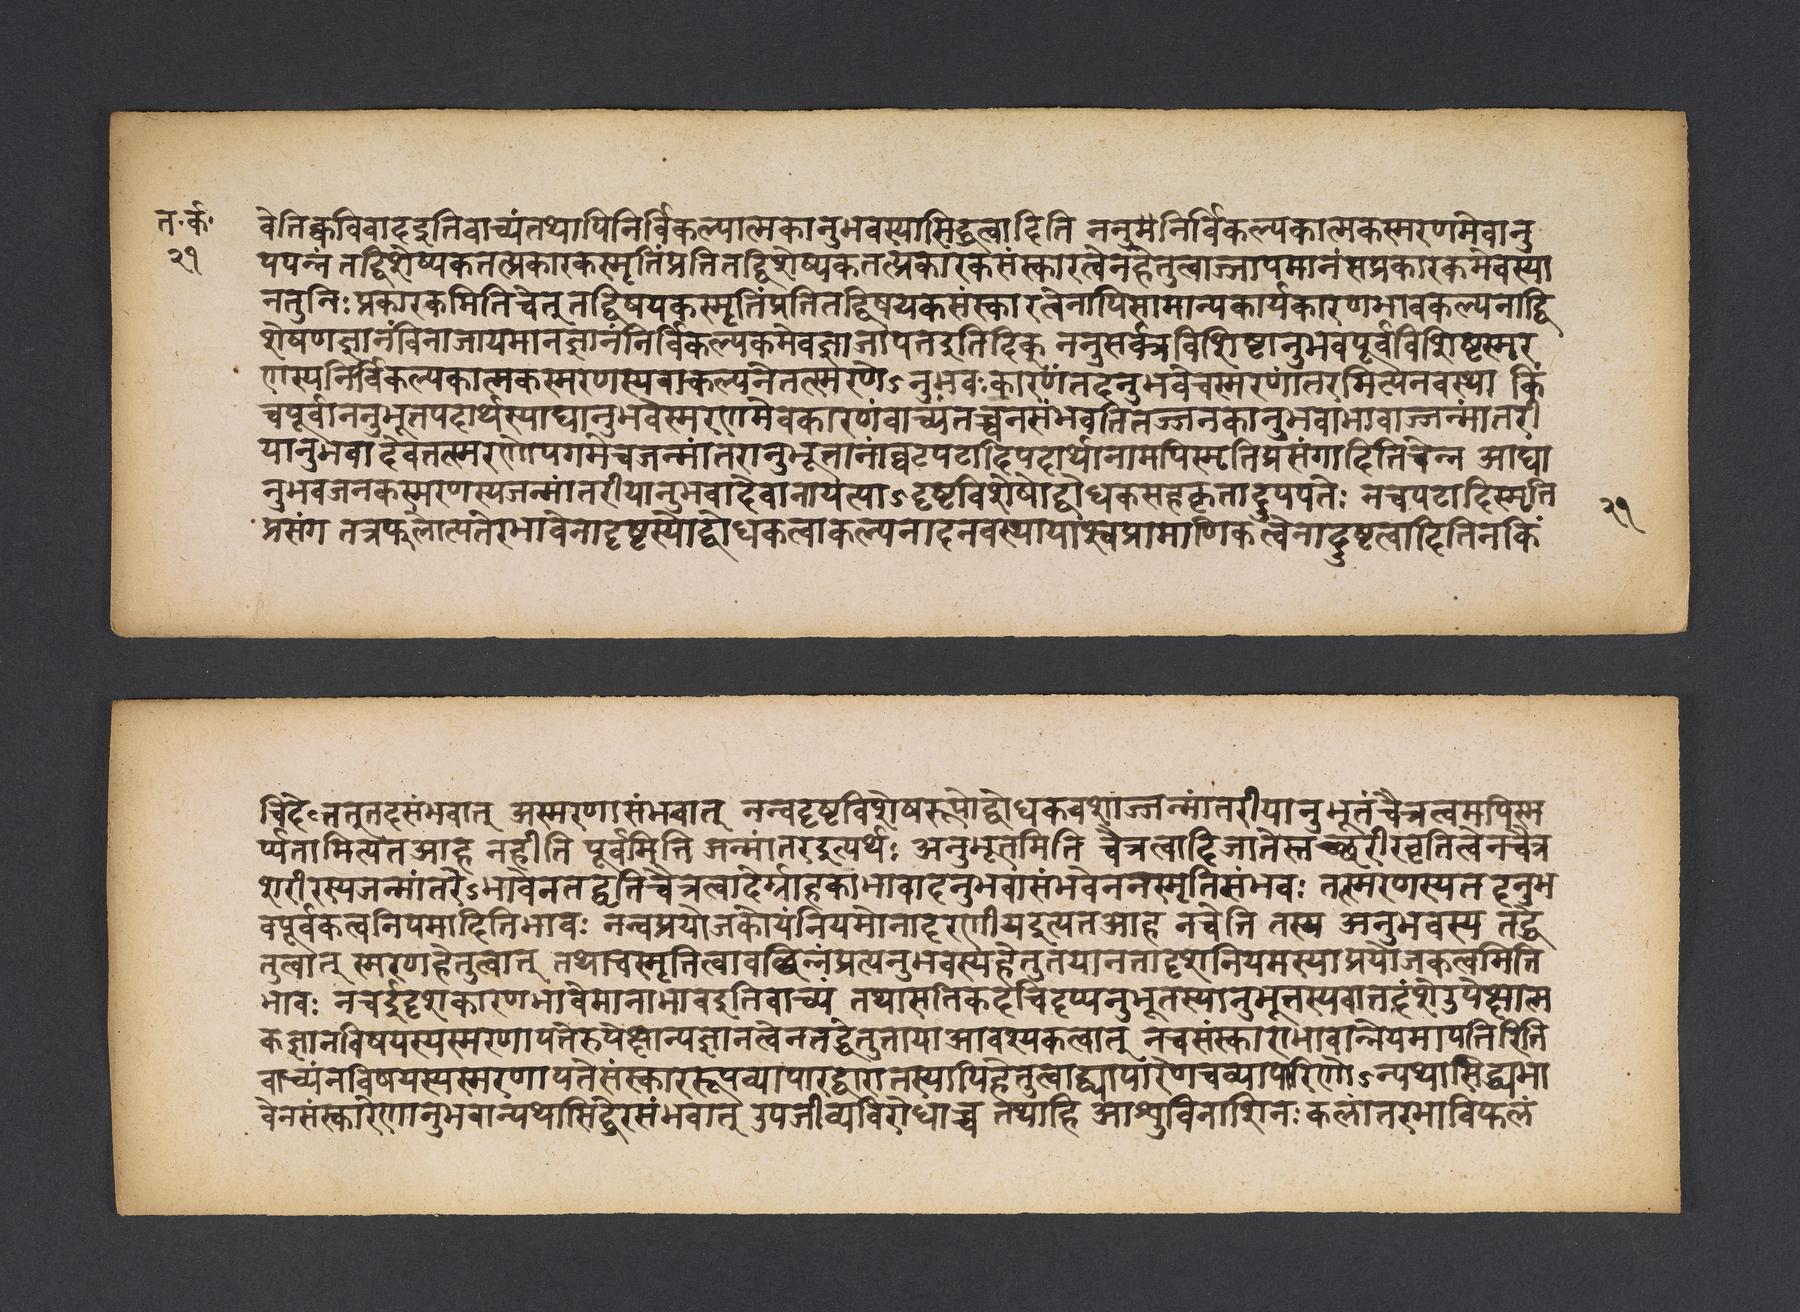 त॰र्क॰
२१
वेतिक्वविवादइतिवाच्यंतथापिनिर्विकल्पात्मकानुभवस्यासिद्धत्वादिति ननुमनिर्विकल्पकात्मकस्मरणमेवानु
पपन्नं तद्विशेष्यकतत्प्रकारकस्मृतिंप्रतितद्विशेष्यकतत्प्रकारकसंस्कारत्वेनहेतुत्वाज्जायमानंसप्रकारकमेवस्या
नतुनिः प्रकारकमितिचेत् तद्विषयकस्मृतिंप्रतितद्विषयकसंस्कारत्वेनापिसामान्यकार्यकारणभावकल्पनाद्वि
शेषणज्ञानंविनाजायमानज्ञानंनिर्विकल्पकमेवज्ञाजायतइतिदिक् ननुसर्वत्रविशिष्टानुभवपूर्वंविशिष्टस्मर
णस्यनिर्विकल्पकात्मकस्मरणस्यवाकल्पनेतत्स्मरणेऽनुभवःकारणंतदनुभवेचस्मरणांतरमित्यनवस्था किं
चपूर्वाननुभूतपदार्थस्याद्यानुभवेस्मरणमेवकारणंवाच्यंतच्चनसंभवतितज्जनकानुभवाभावाज्जन्मांतरी
यानुभवादेवतत्स्मरणोपगमेचजन्मांतरानुभूतानांघटपटादिपदार्थानामपिस्मृतिप्रसंगादितिचेन्न आद्या
नुभवजनकस्मरणस्यजन्मांतरीयानुभवादेवानायत्याऽदृष्टविशेषोद्बोधकसहकृतादुपपत्तेः नचपटादिस्मृति
प्रसंग तत्रफलोत्पत्तेरभावेनादृष्टस्योद्बोधकत्वाकल्पनादनवस्थायाश्चप्रामाणिकत्वेनादुष्टत्वादितिनकिं
२१
चिदेःततुतदसंभवात् अस्मरणासंभवात् नन्वदृष्टविशेषरूपोद्बोधकवशाज्जन्मांतरीयानुभूतंचैत्रत्वमपिस्म
र्य्यतामित्यत आह नहीति पूर्वमिति जन्मांतरइत्यर्थः अनुभूतमिति चैत्रत्वादिजातेस्तच्छरीरवृत्तित्वेनचैत्र
शरीरस्यजन्मांतरेऽभावेनतद्वृत्तिचैत्रत्वादेर्ग्राहकाभावादनुभवासंभवेननस्मृतिसंभवः तत्स्मरणस्यतदनुभ
वपूर्वकत्वनियमादितिभावः नन्वप्रयोजकोयंनियमोनादरणीयइत्यतआह नचेति तस्य अनुभवस्य तद्धे
तुत्वात् स्मरणहेतुत्वात् तथाचस्मृतित्वावच्छिन्नंप्रत्यनुभवस्यहेतुतयानतादृशनियमस्याप्रयोजकत्वमिति
भावः नचईदृशकारणभावेमानाभावइतिवाच्यं तथासतिकदाचिदप्यनुभूतस्यानुभूतस्यवातदंशेउपेक्षात्म
कज्ञानविषयस्यस्मरणापत्तेरुपेक्षान्यज्ञानत्वेनतद्धेतुतायाआवश्यकत्वात् नचसंस्काराभावान्नेयमापत्तिरिति
वाच्यंनविषयस्यस्मरणापत्तेसंस्काररूपव्यापारद्वारातस्यापिहेतुत्वाद्व्यापारेणचव्यापारिणोऽन्यथासिद्ध्यभा
वेनसंस्कारेणानुभवान्यथासिद्धेरसंभवात् उपजीव्यविरोधाच्च तथाहि आश्युविनाशिनः कलांतरभाविफलं